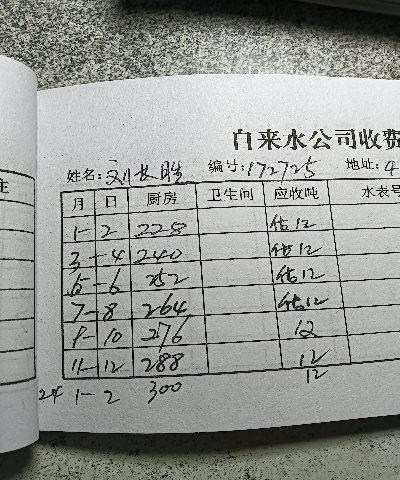 自来水公司收费
姓名：刘长胜 编号：172725 地址：4
月 日 厨房 卫生间 应收吨 水表号
1-2 228 估12
3-4 240 估12
5-6 252 估12
7-8 264 估12
9-10 276 12
11-12 288 12
24 1-2 300 12